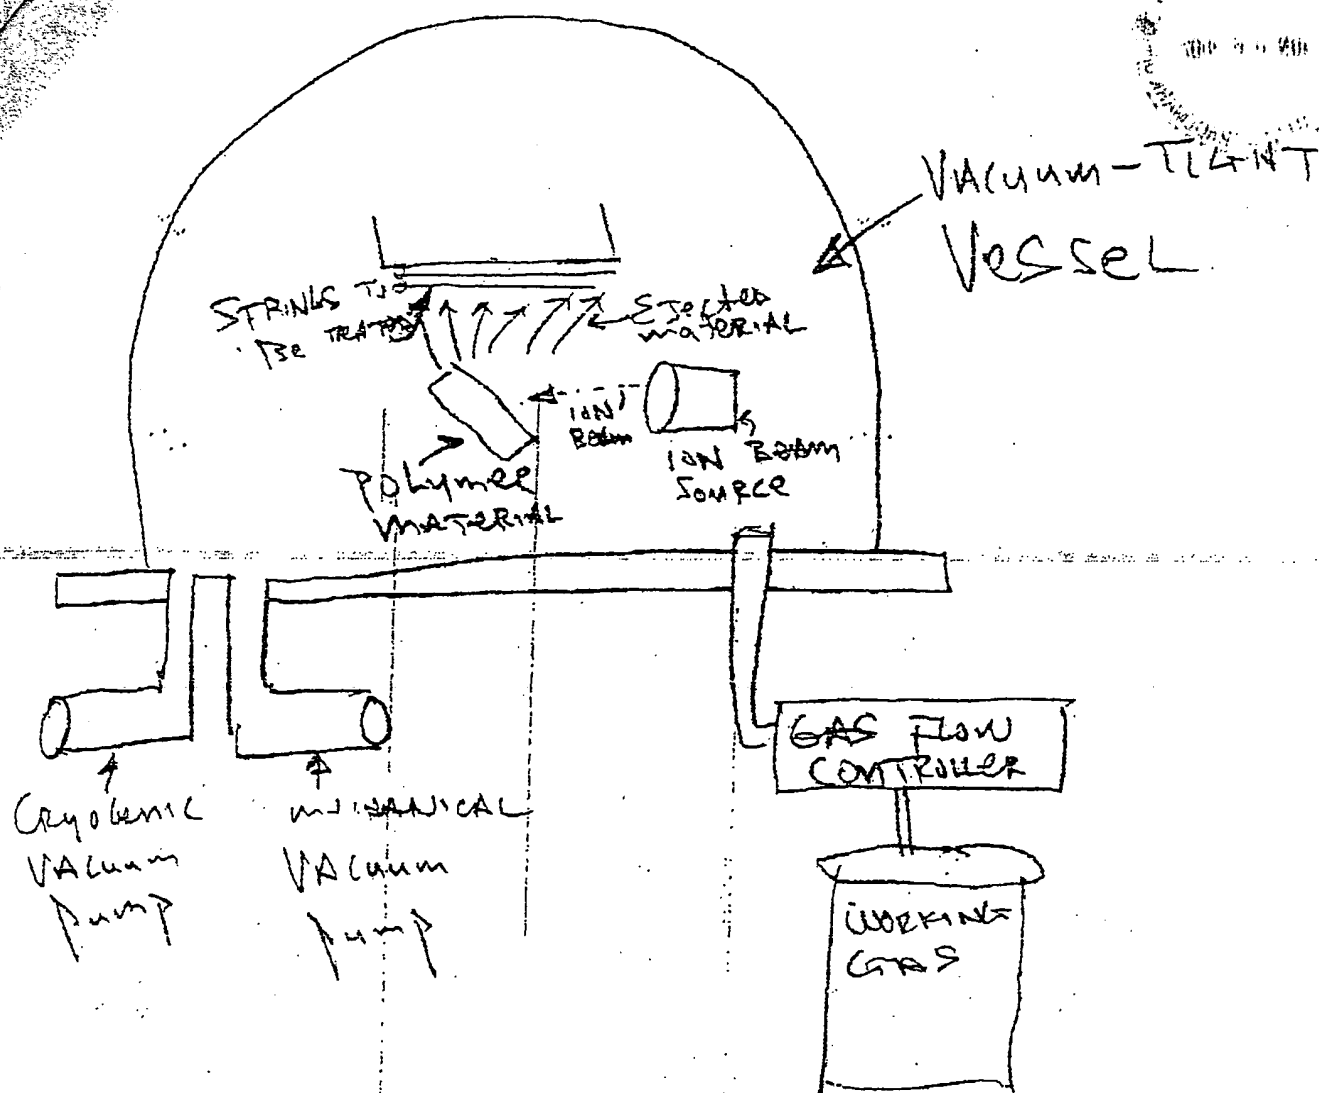 VACUUM-TIGHT
VesseL
STRINGS TO
Be TREATED
EJected
mATeRIAL
ION
BEAM
ION BEAM
SOURCE
POLYmeR
MATERIAL
GAS FLOW
CONTROLLeR
CRyOGeNIC
VACuum
pump
meCHANICAL
VACuum
pump
WORKING
GAS